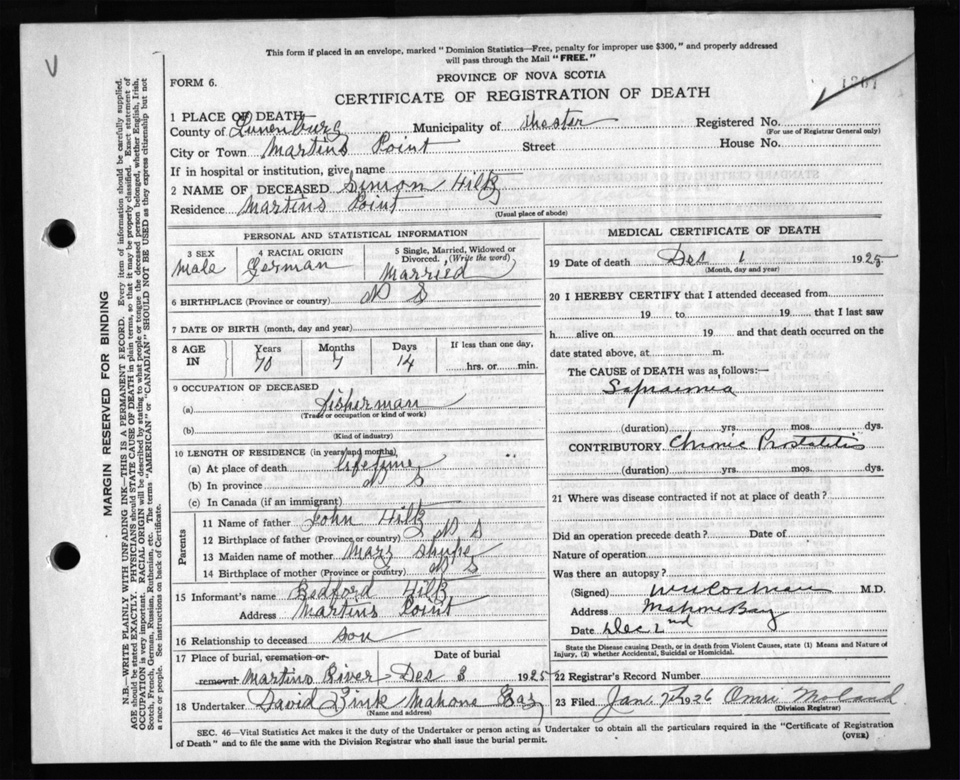 V
This form if placed in an envelope, marked "Dominion Statistics—Free, penalty for improper use $300," and properly addressed
will pass through the Mail "FREE."
FORM 6.
PROVINCE OF NOVA SCOTIA
CERTIFICATE OF REGISTRATION OF DEATH
1 PLACE OF DEATH
County of Lunenburg Municipality of Chester Registered No.
(For use of Registrar General only)
City or Town Martins Point Street House No.
If in hospital or institution, give name
2 NAME OF DECEASED Simon Hiltz
Residence Martins Point
(Usual place of abode)
PERSONAL AND STATISTICAL INFORMATION
3 SEX 4 RACIAL ORIGIN 5 Single, Married, Widowed or Divorced. (Write the word)
Male German Married
6 BIRTHPLACE (Province or country) N S
7 DATE OF BIRTH (month, day and year)
8 AGE IN Years Months Days If less than one day,
70 7 14 hrs. or min.
9 OCCUPATION OF DECEASED
(a) fisherman
(Trade or occupation or kind of work)
(b)
(Kind of industry)
10 LENGTH OF RESIDENCE (in years and months)
(a) At place of death lifetime
(b) In province N S
(c) In Canada (if an immigrant)
Parents
11 Name of father John Hiltz
12 Birthplace of father (Province or country) N S
13 Maiden name of mother Mary Shupe
14 Birthplace of mother (Province or country) N S
15 Informant's name Bedford Hiltz
Address Martins Point
16 Relationship to deceased son
17 Place of burial, cremation or Date of burial
removal Martins River Des 3 1925
18 Undertaker David Zink Mahone Bay
(Name and address)
MEDICAL CERTIFICATE OF DEATH
19 Date of death Des 1 1925
(Month, day and year)
20 I HEREBY CERTIFY that I attended deceased from
19 to 19 that I last saw
h alive on 19 and that death occurred on the
date stated above, at m.
The CAUSE of DEATH was as follows:—
Sapraemia
(duration) yrs. mos. dys.
CONTRIBUTORY Chronic Prostatitis
(duration) yrs. mos. dys.
21 Where was disease contracted if not at place of death?
Did an operation precede death? Date of
Nature of operation
Was there an autopsy?
(Signed) Cochran M.D.
Address Mahone Bay
Date Dec 2nd
State the Disease causing Death, or in death from Violent Causes, state (1) Means and Nature of
Injury, (2) whether Accidental, Suicidal or Homicidal.
22 Registrar's Record Number
23 Filed Jan 1926 Omri
(Division Registrar)
SEC. 46—Vital Statistics Act makes it the duty of the Undertaker or person acting as Undertaker to obtain all the particulars required in the "Certificate of Registration
of Death" and to file the same with the Division Registrar who shall issue the burial permit.
(OVER)
MARGIN RESERVED FOR BINDING
N.B.—WRITE PLAINLY WITH UNFADING INK—THIS IS A PERMANENT RECORD. Every item of information should be carefully supplied.
AGE should be stated EXACTLY. PHYSICIANS should STATE CAUSE OF DEATH in plain terms, so that it may be properly classified. Exact statement of
OCCUPATION is very important. RACIAL ORIGIN will be described by stating to what people or tongue the deceased person belonged, whether English, Irish,
Scotch, French, German, Russian, Ruthenian, etc. The terms "AMERICAN" or "CANADIAN" SHOULD NOT BE USED as they express citizenship but not
a race or people. See instructions on back of Certificate.